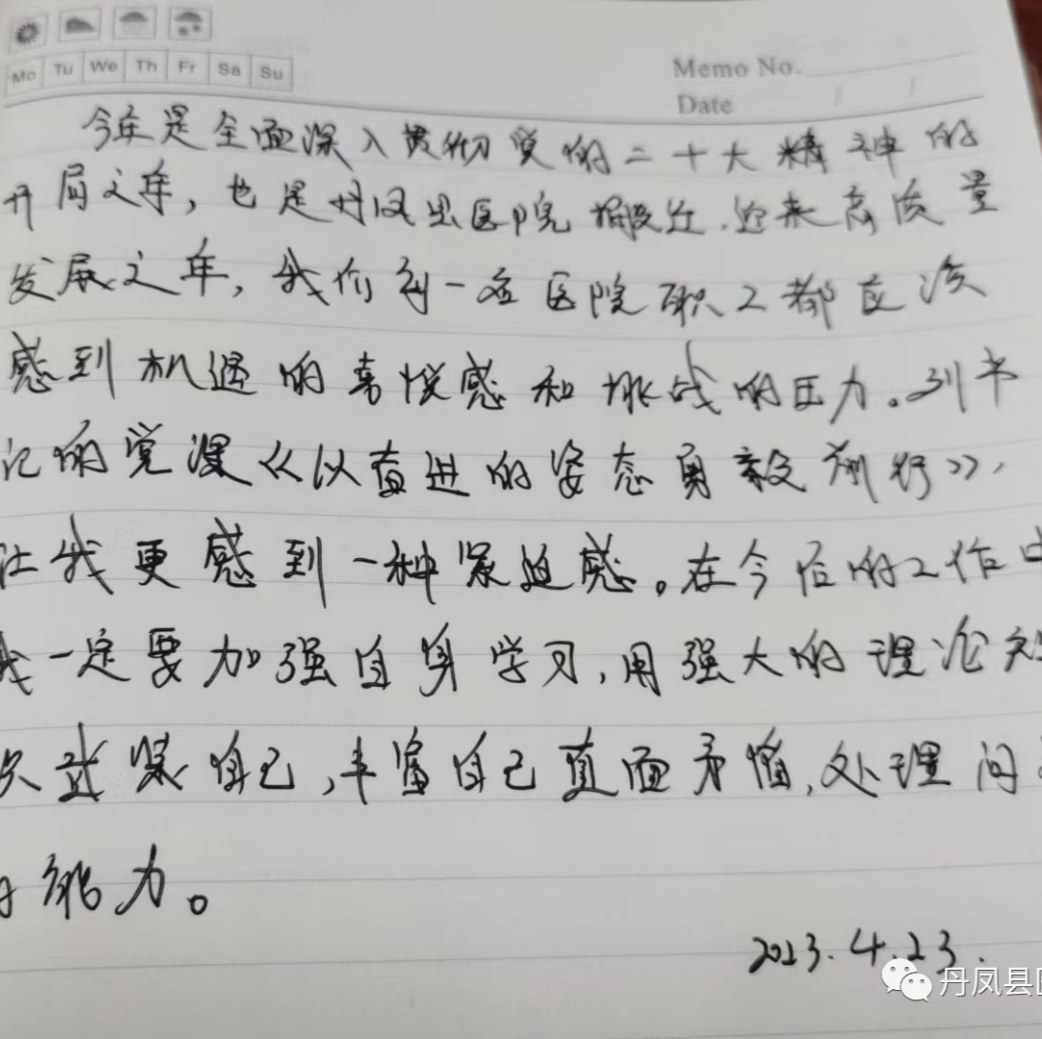 Mo Tu We Th Fr Sa Su
Memo No.
Date / /
今年是全面深入贯彻党的二十大精神的
开局之年，也是丹凤县医院搬迁、迎来高质量
发展之年，我们每一名医院职工都应该
感到机遇的喜悦感和挑战的压力。刘书
记的党课《以奋进的姿态勇毅前行》，
让我更感到一种紧迫感。在今后的工作中
我一定要加强自身学习，用强大的理论知
识武装自己，丰富自己直面矛盾，处理问
的能力。
2023.4.23.
丹凤县医